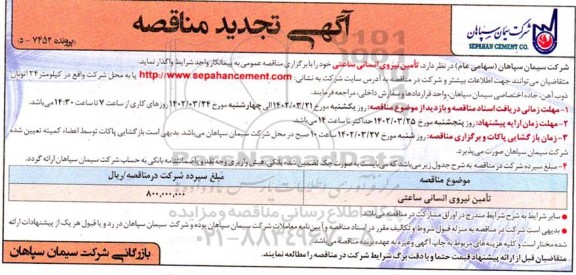 شرکت سیمان سپاهان
SEPAHAN CEMENT CO.
آگهی تجدید مناقصه
پرونده ۷۴۵۲ - د:
شرکت سیمان سپاهان (سهامی عام)، در نظر دارد، تأمین نیروی انسانی ساعتی خود را با برگزاری مناقصه عمومی به پیمانکار واجد شرایط واگذار نماید.
متقاضیان می توانند جهت اطلاعات بیشتر و شرکت در مناقصه به آدرس سایت شرکت به نشانی: http://www.sepahancement.com یا به محل شرکت واقع در کیلومتر ۲۴ اتوبان
ذوب آهن، جاده اختصاصی سیمان سپاهان، واحد قراردادها و سفارش داخلی، مراجعه فرمایند.
۱- مهلت زمانی دریافت اسناد مناقصه و بازدید از موضوع مناقصه: روز یکشنبه مورخ ۱۴۰۲/۰۳/۲۱ الی چهارشنبه مورخ ۱۴۰۲/۰۳/۲۴ روزهای کاری از ساعت ۷ تا ساعت ۱۴:۳۰ می باشد.
۲- مهلت زمان ارایه پیشنهاد: روز پنجشنبه مورخ ۱۴۰۲/۰۳/۲۵ حداکثر تا ساعت ۱۴ می باشد.
۳- زمان بازگشایی پاکات و برگزاری مناقصه: روز شنبه مورخ ۱۴۰۲/۰۳/۲۷ ساعت ۱۰ صبح در محل شرکت سیمان سپاهان می باشد. بدیهی است بازگشایی پاکات توسط اعضاء کمیته تعیین شده
شرکت سیمان سپاهان صورت می پذیرد.
۴- مبلغ سپرده شرکت در مناقصه به شرح جدول زیر می باشد که می بایست به صورت چک تضمین شده بانکی، فیش واریزی وجه نقد و یا ضمانتنامه بانکی به حساب شرکت سیمان سپاهان ارائه گردد.
موضوع مناقصه مبلغ سپرده شرکت در مناقصه/ریال
تأمین نیروی انسانی ساعتی ۸۰۰,۰۰۰,۰۰۰
سایر شرایط به شرح شرایط مندرج در اوراق مشارکت در مناقصه می باشد.
بدیهی است شرکت در مناقصه به منزله قبول شروط و تکالیف مقرر در اسناد مناقصه و آیین نامه معاملات شرکت سیمان سپاهان بوده و شرکت سیمان سپاهان در رد و یا قبول هر یک از پیشنهادات ارائه
شده مختار است و کلیه هزینه های مربوط به چاپ آگهی و غیره به عهده برنده مناقصه می باشد.
متقاضیان قبل از ارائه پیشنهاد قیمت حتما و با دقت برگ شرایط شرکت در مناقصه را مطالعه نمایند.
بازرگانی شرکت سیمان سپاهان